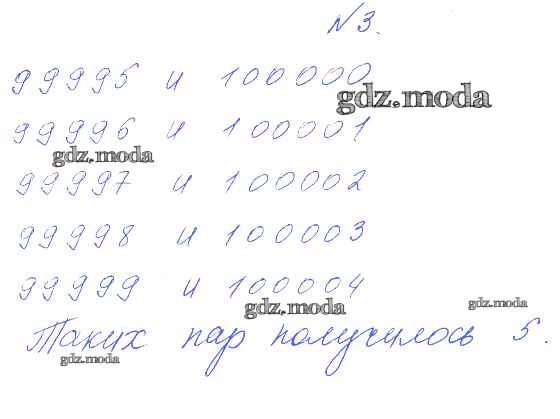 №3.
99995 и 100000
gdz.moda
99996 и 100001
gdz.moda
99997 и 100002
99998 и 100003
99999 и 100004
gdz.moda
gdz.moda
Таких пар получилось 5.
gdz.moda